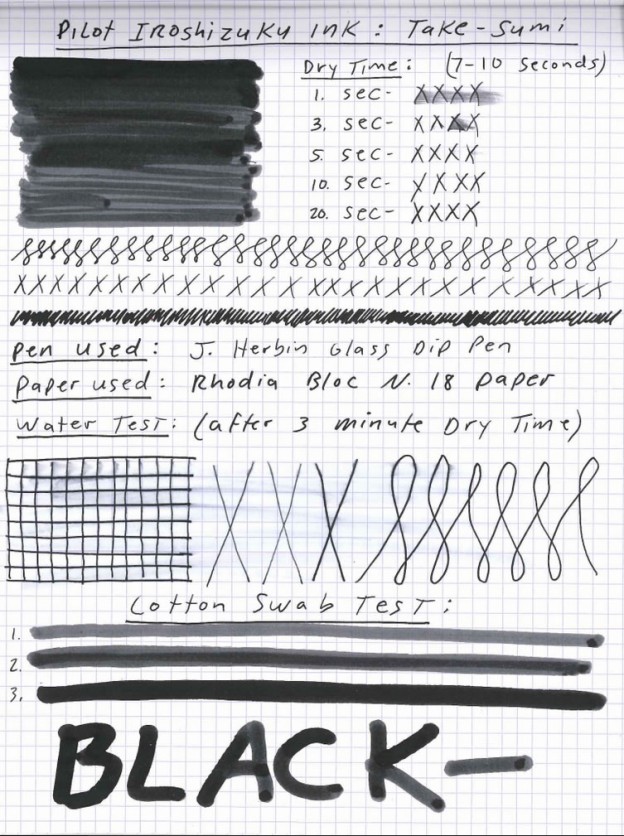 Pilot Iroshizuku Ink: Take-Sumi
Dry Time: (7-10 seconds)
1. sec- XXXX
3. sec- XXXX
5. sec- XXXX
10. sec- XXXX
20. sec- XXXX
Pen used: J. Herbin Glass Dip Pen
Paper used: Rhodia Bloc N. 18 paper
Water Test: (after 3 minute Dry Time)
Cotton Swab Test:
1.
2.
3.
BLACK-